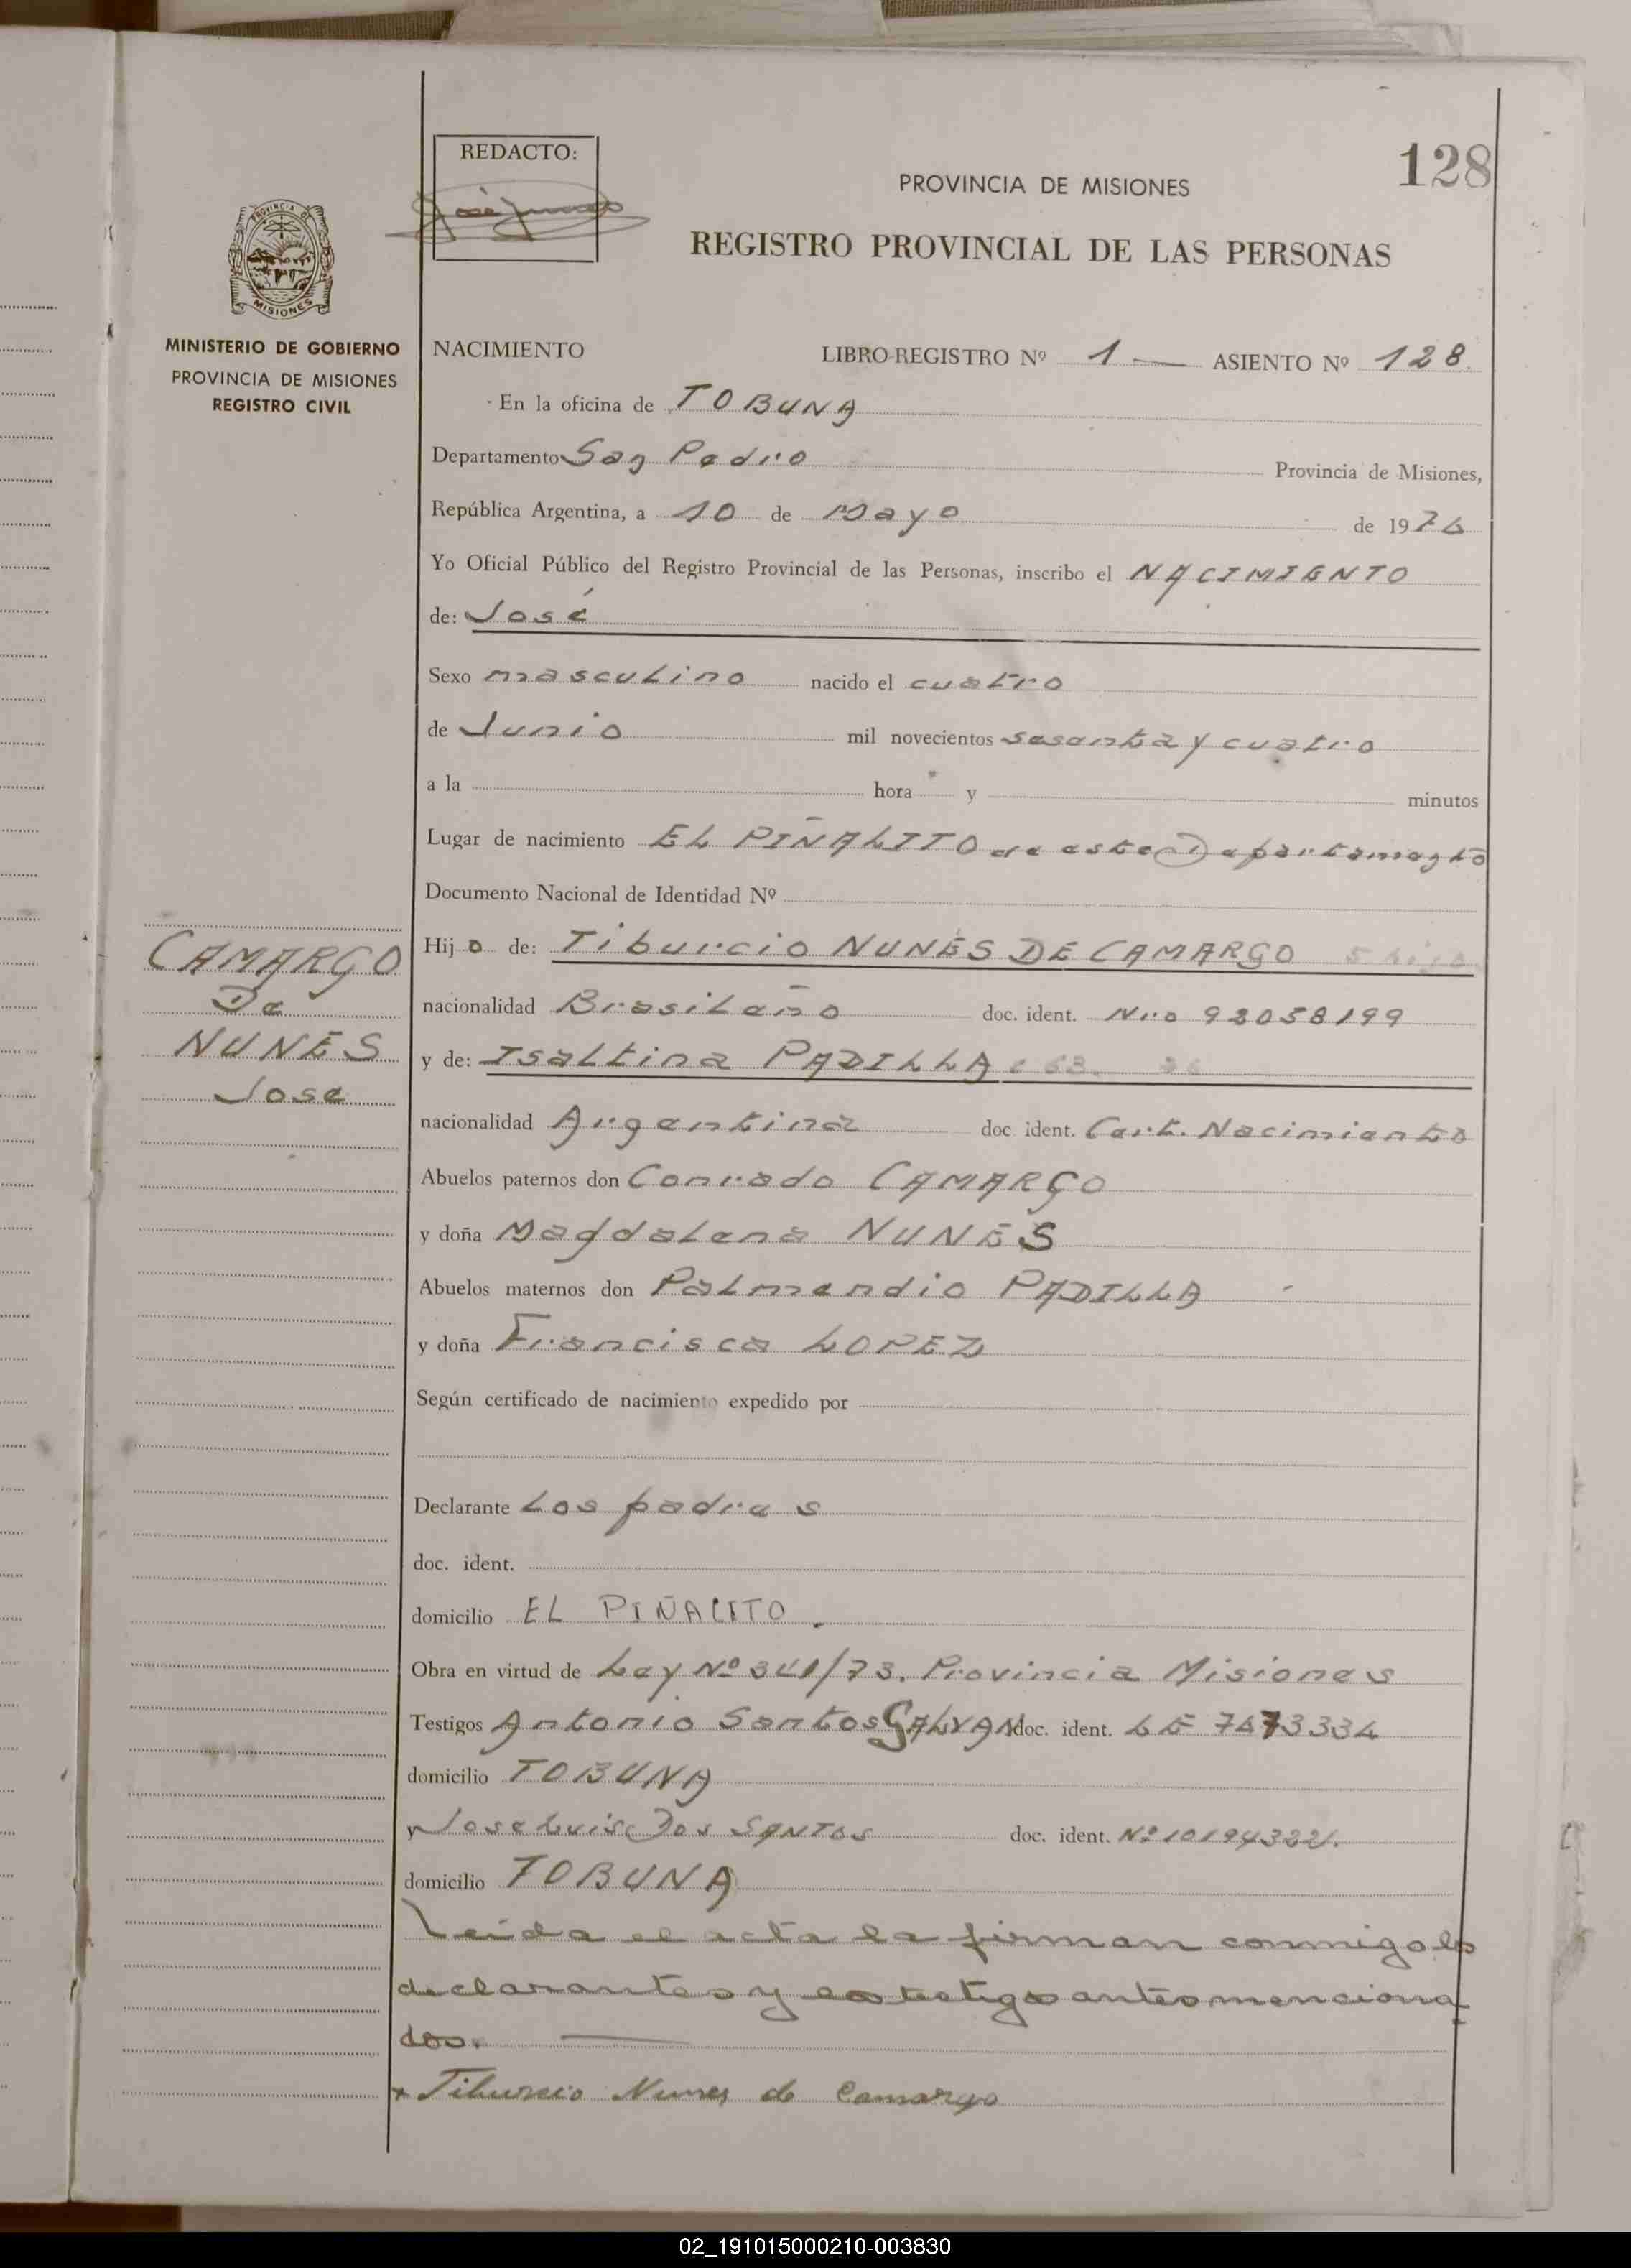 128
REDACTO:
PROVINCIA DE MISIONES
REGISTRO PROVINCIAL DE LAS PERSONAS
PROVINCIA DE
MISIONES
MINISTERIO DE GOBIERNO
PROVINCIA DE MISIONES
REGISTRO CIVIL
NACIMIENTO LIBRO-REGISTRO Nº 1 — ASIENTO Nº 128.
En la oficina de TOBUNA
Departamento San Pedro Provincia de Misiones,
República Argentina, a 10 de Mayo de 1974
Yo Oficial Público del Registro Provincial de las Personas, inscribo el NACIMIENTO
de: José
Sexo masculino nacido el cuatro
de Junio mil novecientos sesenta y cuatro
a la hora y minutos
Lugar de nacimiento EL PIÑALITO de este Departamento
Documento Nacional de Identidad Nº
Hijo de: Tiburcio NUNES DE CAMARGO
nacionalidad Brasileño doc. ident. Nro 92058199
y de: Isaltina PADILLA
nacionalidad Argentina doc ident. Cert. Nacimiento
Abuelos paternos don Conrado CAMARGO
y doña Magdalena NUNES
Abuelos maternos don Palmendio PADILLA
y doña Francisca LOPEZ
Según certificado de nacimiento expedido por
Declarante Los padres
doc. ident.
domicilio EL PIÑALITO.
Obra en virtud de Ley Nº 341/73. Provincia Misiones
Testigos Antonio Santos GALVAN doc. ident. LE 7473334
domicilio TOBUNA
y Jose Luis Dos SANTOS doc. ident. Nº 10194322.
domicilio TOBUNA
Leída el acta la firman conmigo los
declarantes y los testigos antes menciona
dos. —
Tiburcio Nunes de Camargo
CAMARGO
De
NUNES
Jose
02_191015000210-003830